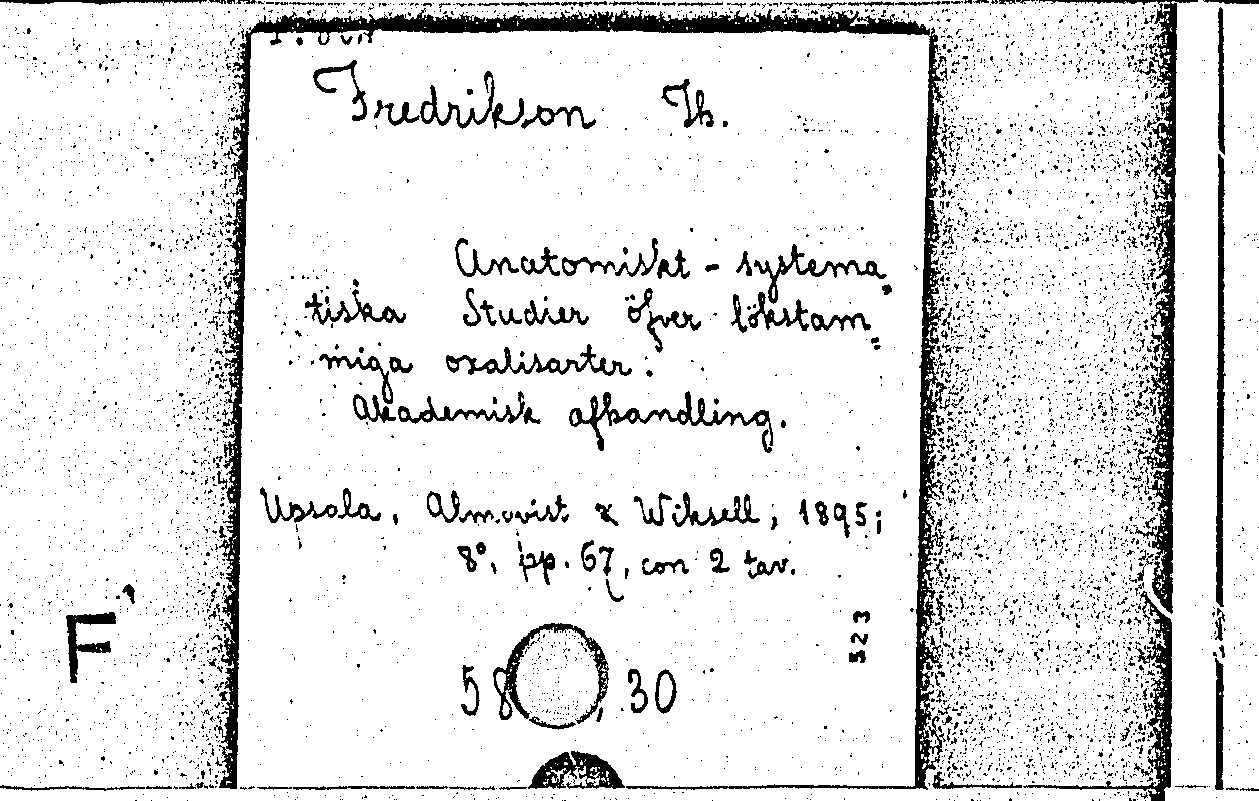 Fredrikson Th.
Anatomiskt - systema„
tiska Studier öfver lökstam„
miga oxalisarter.
Akademisk afhandling.
Upsala, Almqvist & Wiksell, 1895;
8°, pp. 67, con 2 tav.
523
F
58 , 30